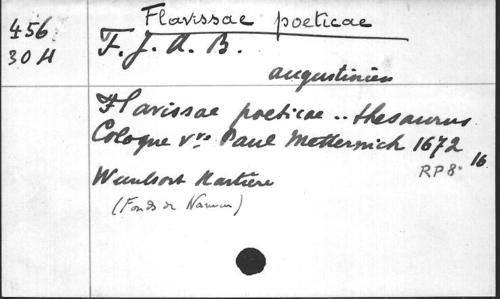 Flavissae poeticae
456
30 H
F. J. A. B.
augustinien
Flavissae poeticae .. thesaurus
Cologne vve Paul Metternich 1672
RP 8° 16
Hastière
(Fonds de Namur)